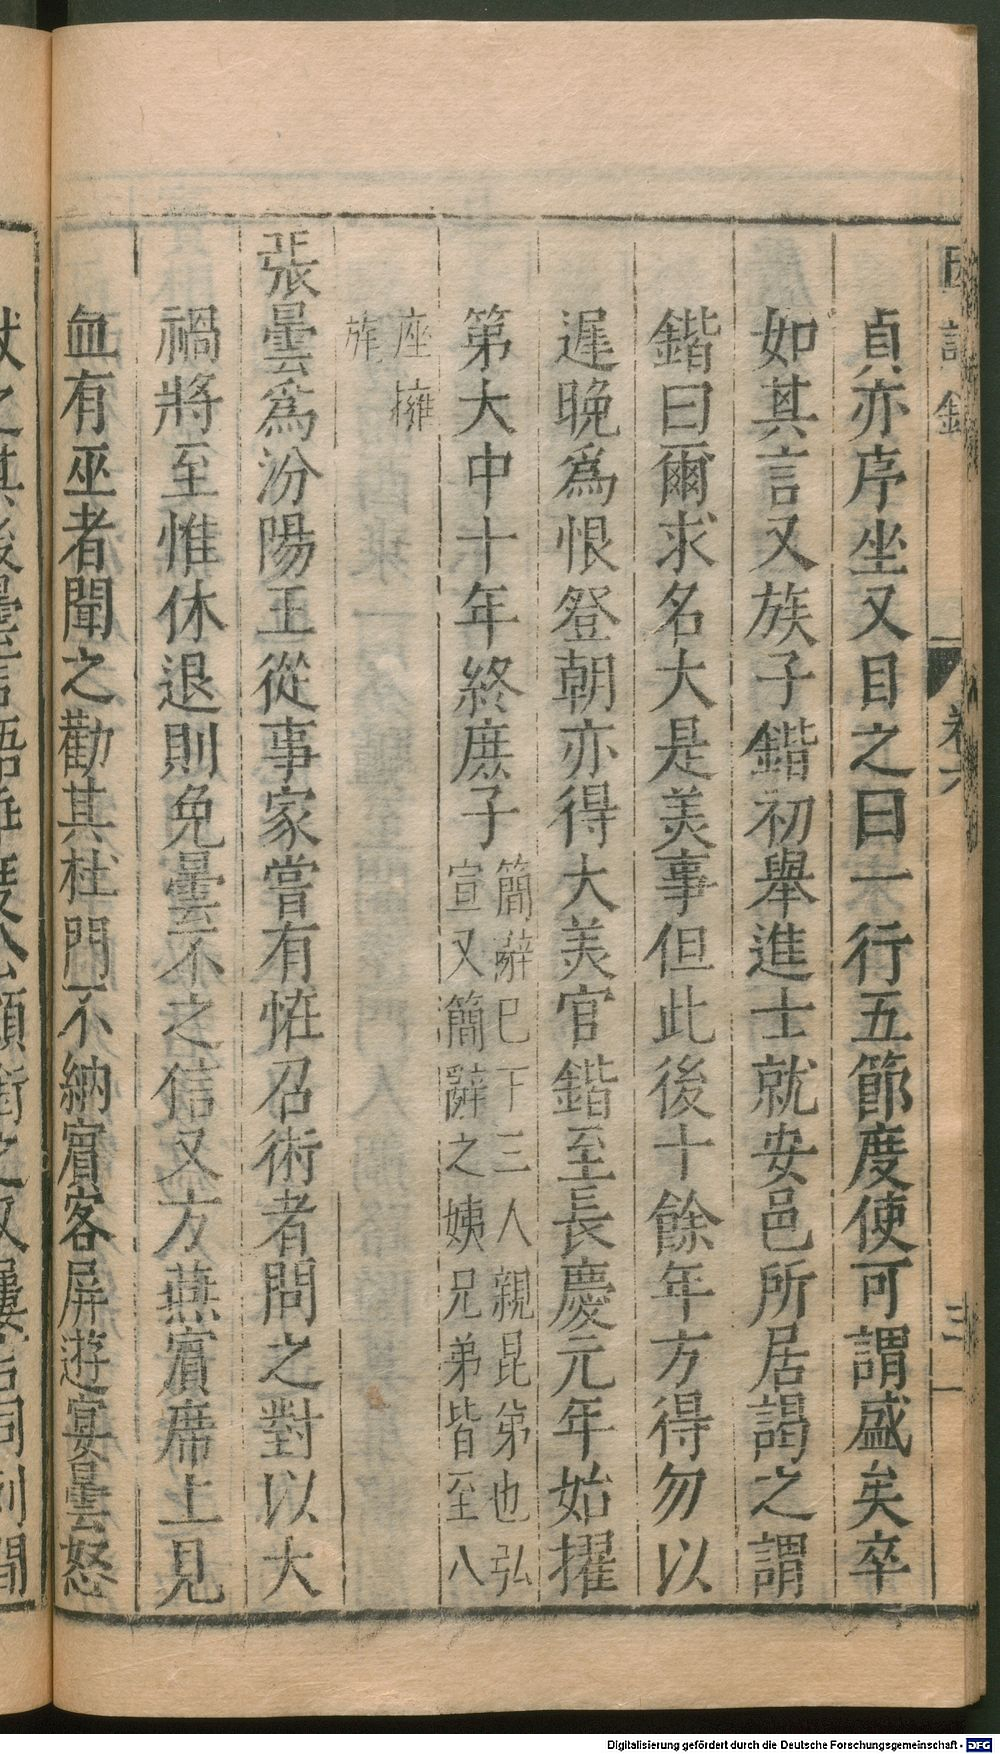 貞亦序坐又目之曰一行五節度使可謂盛矣卒
如其言又族子鍇初舉進士就安邑所居謁之謂
鍇曰爾求名大是美事但此後十餘年方得勿以
遲晚爲恨登朝亦得大美官鍇至長慶元年始擢
第大中十年終庶子
簡辭巳下三人親昆弟也弘
宣又簡辭之姨兄弟皆至八
座擁
旄
張曇爲汾陽王從事家嘗有恠召術者問之對以大
禍將至惟休退則免曇不之信又方燕賓席上見
血有巫者聞之勸其杜門不納賓客屏遊宴曇怒
卷六
Digitalisierung gefördert durch die Deutsche Forschungsgemeinschaft - DFG